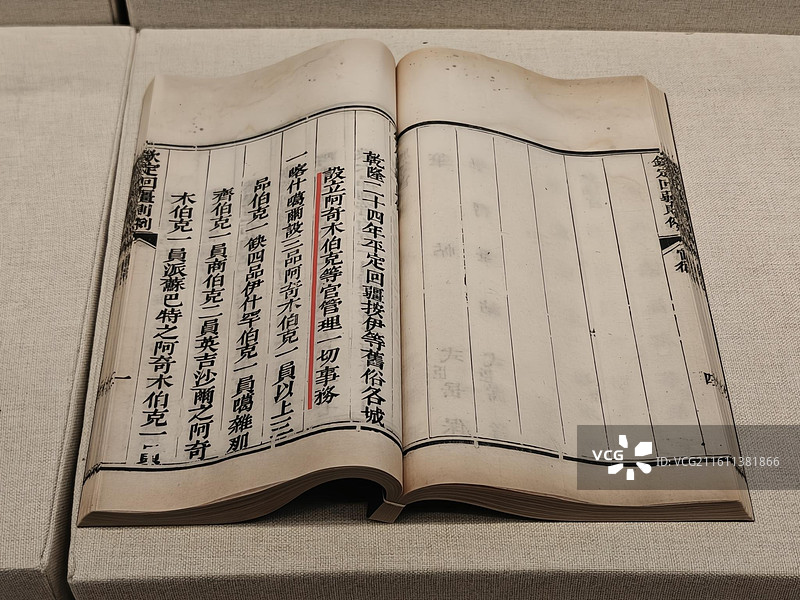 乾隆二十四年平定回疆按伊等舊俗各城
設立阿奇木伯克等官管理一切事務
一喀什噶爾設三品阿奇木伯克一員以上三
品伯克一缺四品伊什罕伯克一員噶雜那
齊伯克一員商伯克二員英吉沙爾之阿奇
木伯克一員派蘇巴特之阿奇木伯克一員
欽定回疆則例
欽定回疆則例
VCG
ID:VCG211611381866